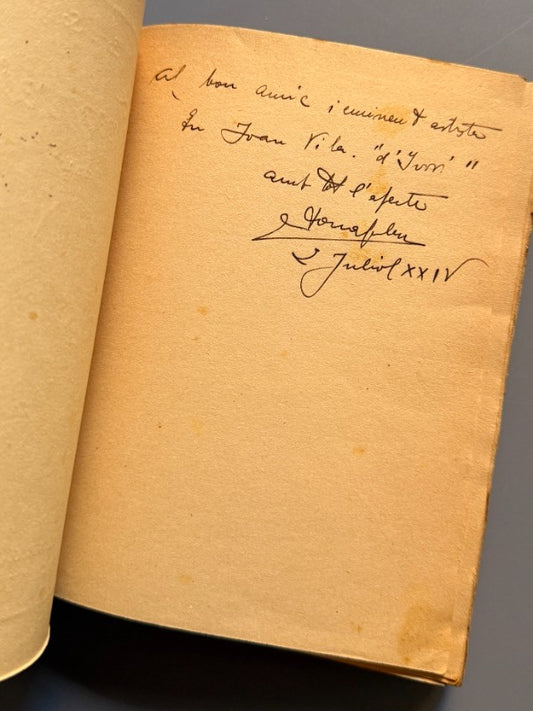 Al bon amic i eminent artista
En Joan Vila. "d'Ivori"
amb tot l'afecte
2 Juliol XXIV